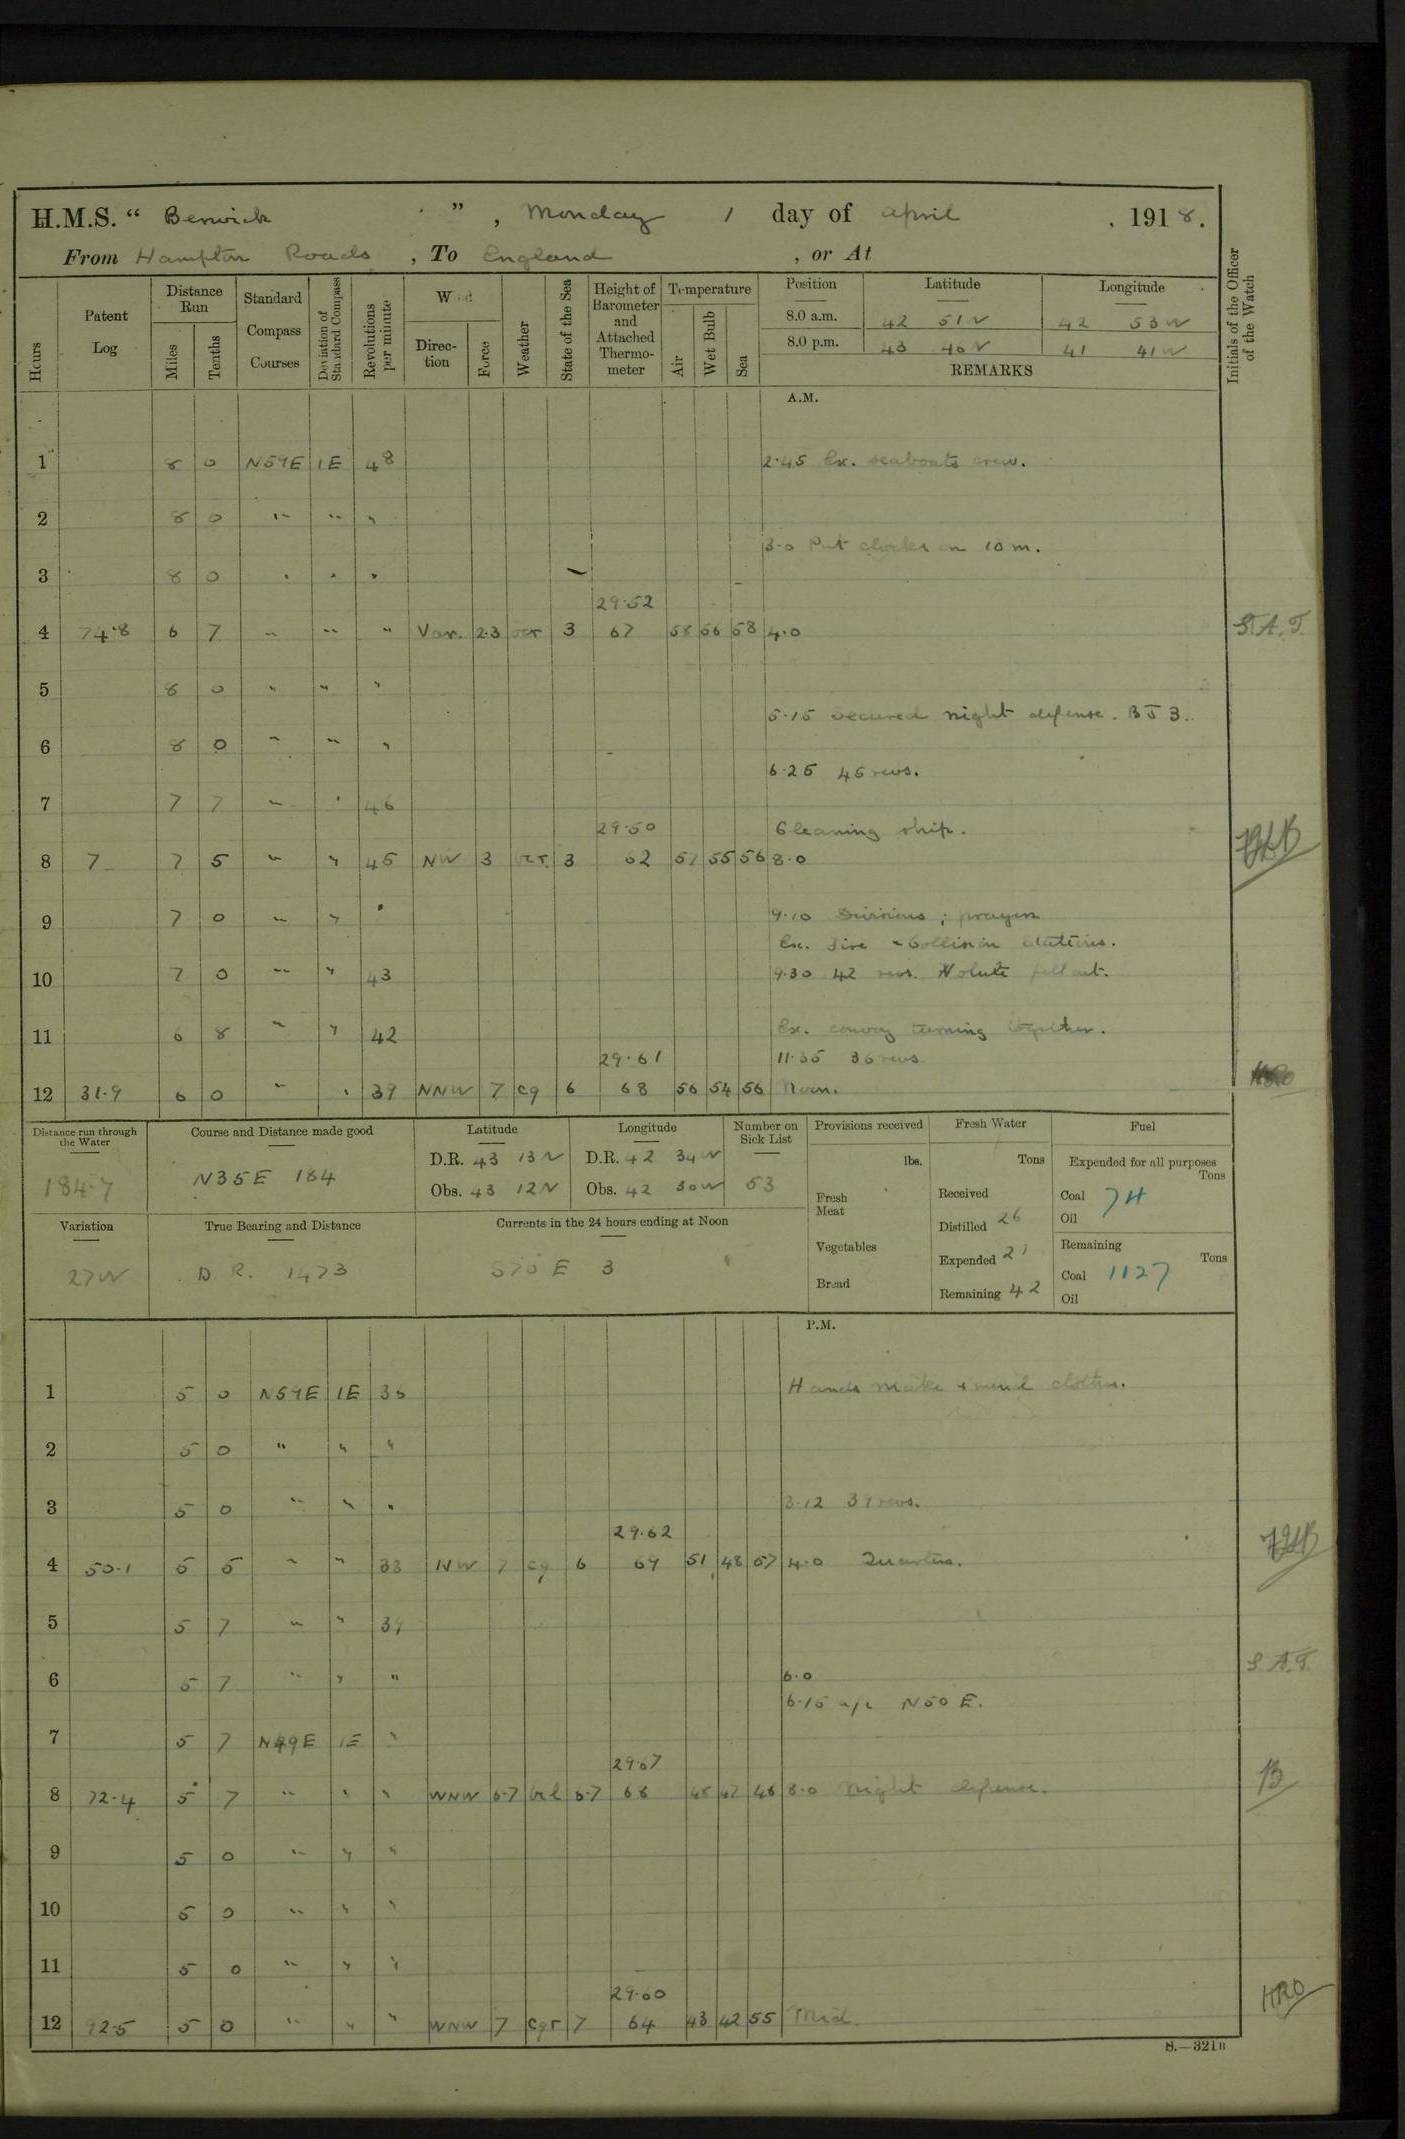 H.M.S. “ Berwick ” , Monday 1 day of April , 1918.
From Hampton Roads , To England , or At
Hours
Patent Log
Distance Run
Miles
Tenths
Standard Compass Courses
Deviation of Standard Compass
Revolutions per minute
Wind
Direction
Force
Weather
State of the Sea
Height of Barometer and Attached Thermometer
Temperature
Air
Wet Bulb
Sea
Position Latitude Longitude
8.0 a.m. 42 51 N 42 53 W
8.0 p.m. 43 40 N 41 41 W
REMARKS
Initials of the Officer of the Watch
A.M.
1 8 0 N59E 1E 48 2.45 Ex. seaboats crew.
2 8 0 " " "
3.0 Put clocks on 10 m.
3 8 0 " " "
29.52
4 74.8 6 7 " " " Var. 2.3 3 67 58 56 58 4.0 S.A.T.
5 8 0 " " "
5.15 Secured night defense. B J 3.
6 8 0 " " "
6.25 45 revs.
7 7 7 " " 46
29.50 Cleaning ship.
8 7 7 5 " " 45 NW 3 3 62 55 56 8.0
9 7 0 " " " 9.10 Divisions ; prayers
Ex. Fire & Collision stations.
10 7 0 " " 43 9.30 42 revs. Volute fell out.
11 6 8 " " 42 Ex. convoy turning together.
29.61 11.35 36 revs
12 31.9 6 0 " " 39 NNW 7 cq 6 68 56 54 56 Noon.
Distance run through the Water
184.7
Course and Distance made good
N35E 184
Latitude
D.R. 43 13 N
Obs. 43 12 N
Longitude
D.R. 42 34 W
Obs. 42 30 W
Number on Sick List
53
Provisions received
lbs.
Fresh Meat
Vegetables
Bread
Fresh Water
Tons
Received
Distilled 26
Expended 21
Remaining 42
Fuel
Expended for all purposes
Tons
Coal 74
Oil
Remaining
Tons
Coal 1127
Oil
Variation
27W
True Bearing and Distance
D.R. 1473
Currents in the 24 hours ending at Noon
S70E 3
P.M.
1 5 0 N59E 1E Hands make & mend clothes.
2 5 0 " " "
3 5 0 " " " 3.12 revs.
29.62
4 50.1 5 5 " " 33 NW 7 cq 6 69 51 48 57 4.0 Quarters.
5 5 7 " "
6 5 7 " " " 6.0 S.A.T.
6.15 a/c N50E.
7 5 7 N49E 1E "
29.67
8 72.4 5 7 " " " WNW 6-7 6-7 68 8.0 Night defense. B
9 5 0 " " "
10 5 0 " " "
11 5 0 " " "
29.60
12 92.5 5 0 " " " WNW 7 cqr 7 64 43 42 55 Mid. HRO
S.—321B